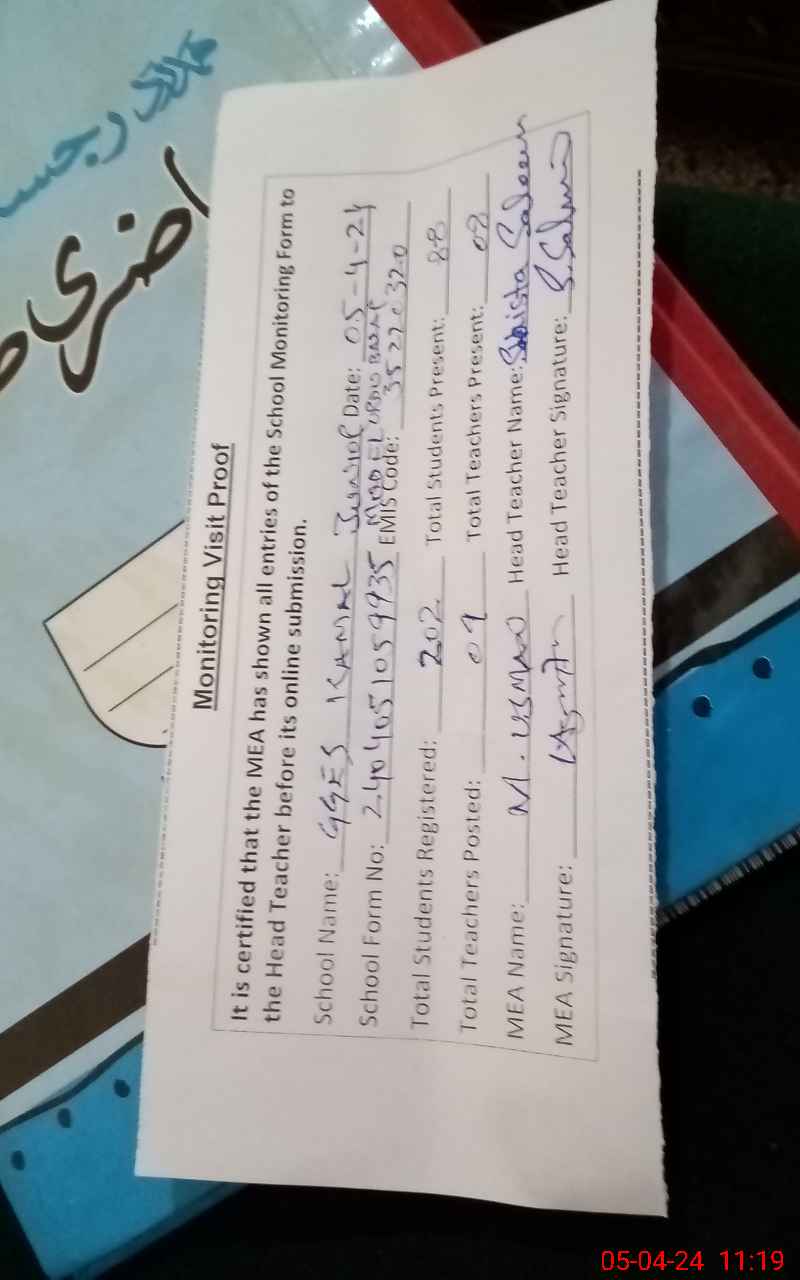 حاضری
Monitoring Visit Proof
It is certified that the MEA has shown all entries of the School Monitoring Form to
the Head Teacher before its online submission.
School Name: GGES KAMAL Junior Date: 05-4-24
MODEL URDU
School Form No: 2404051059935 EMIS Code: 35220320
Total Students Registered: 202 Total Students Present: 88
Total Teachers Posted: 09 Total Teachers Present: 08
MEA Name: M. USMAN Head Teacher Name: Shista Saleem
MEA Signature: Usman Head Teacher Signature: S. Salmi
05-04-24 11:19